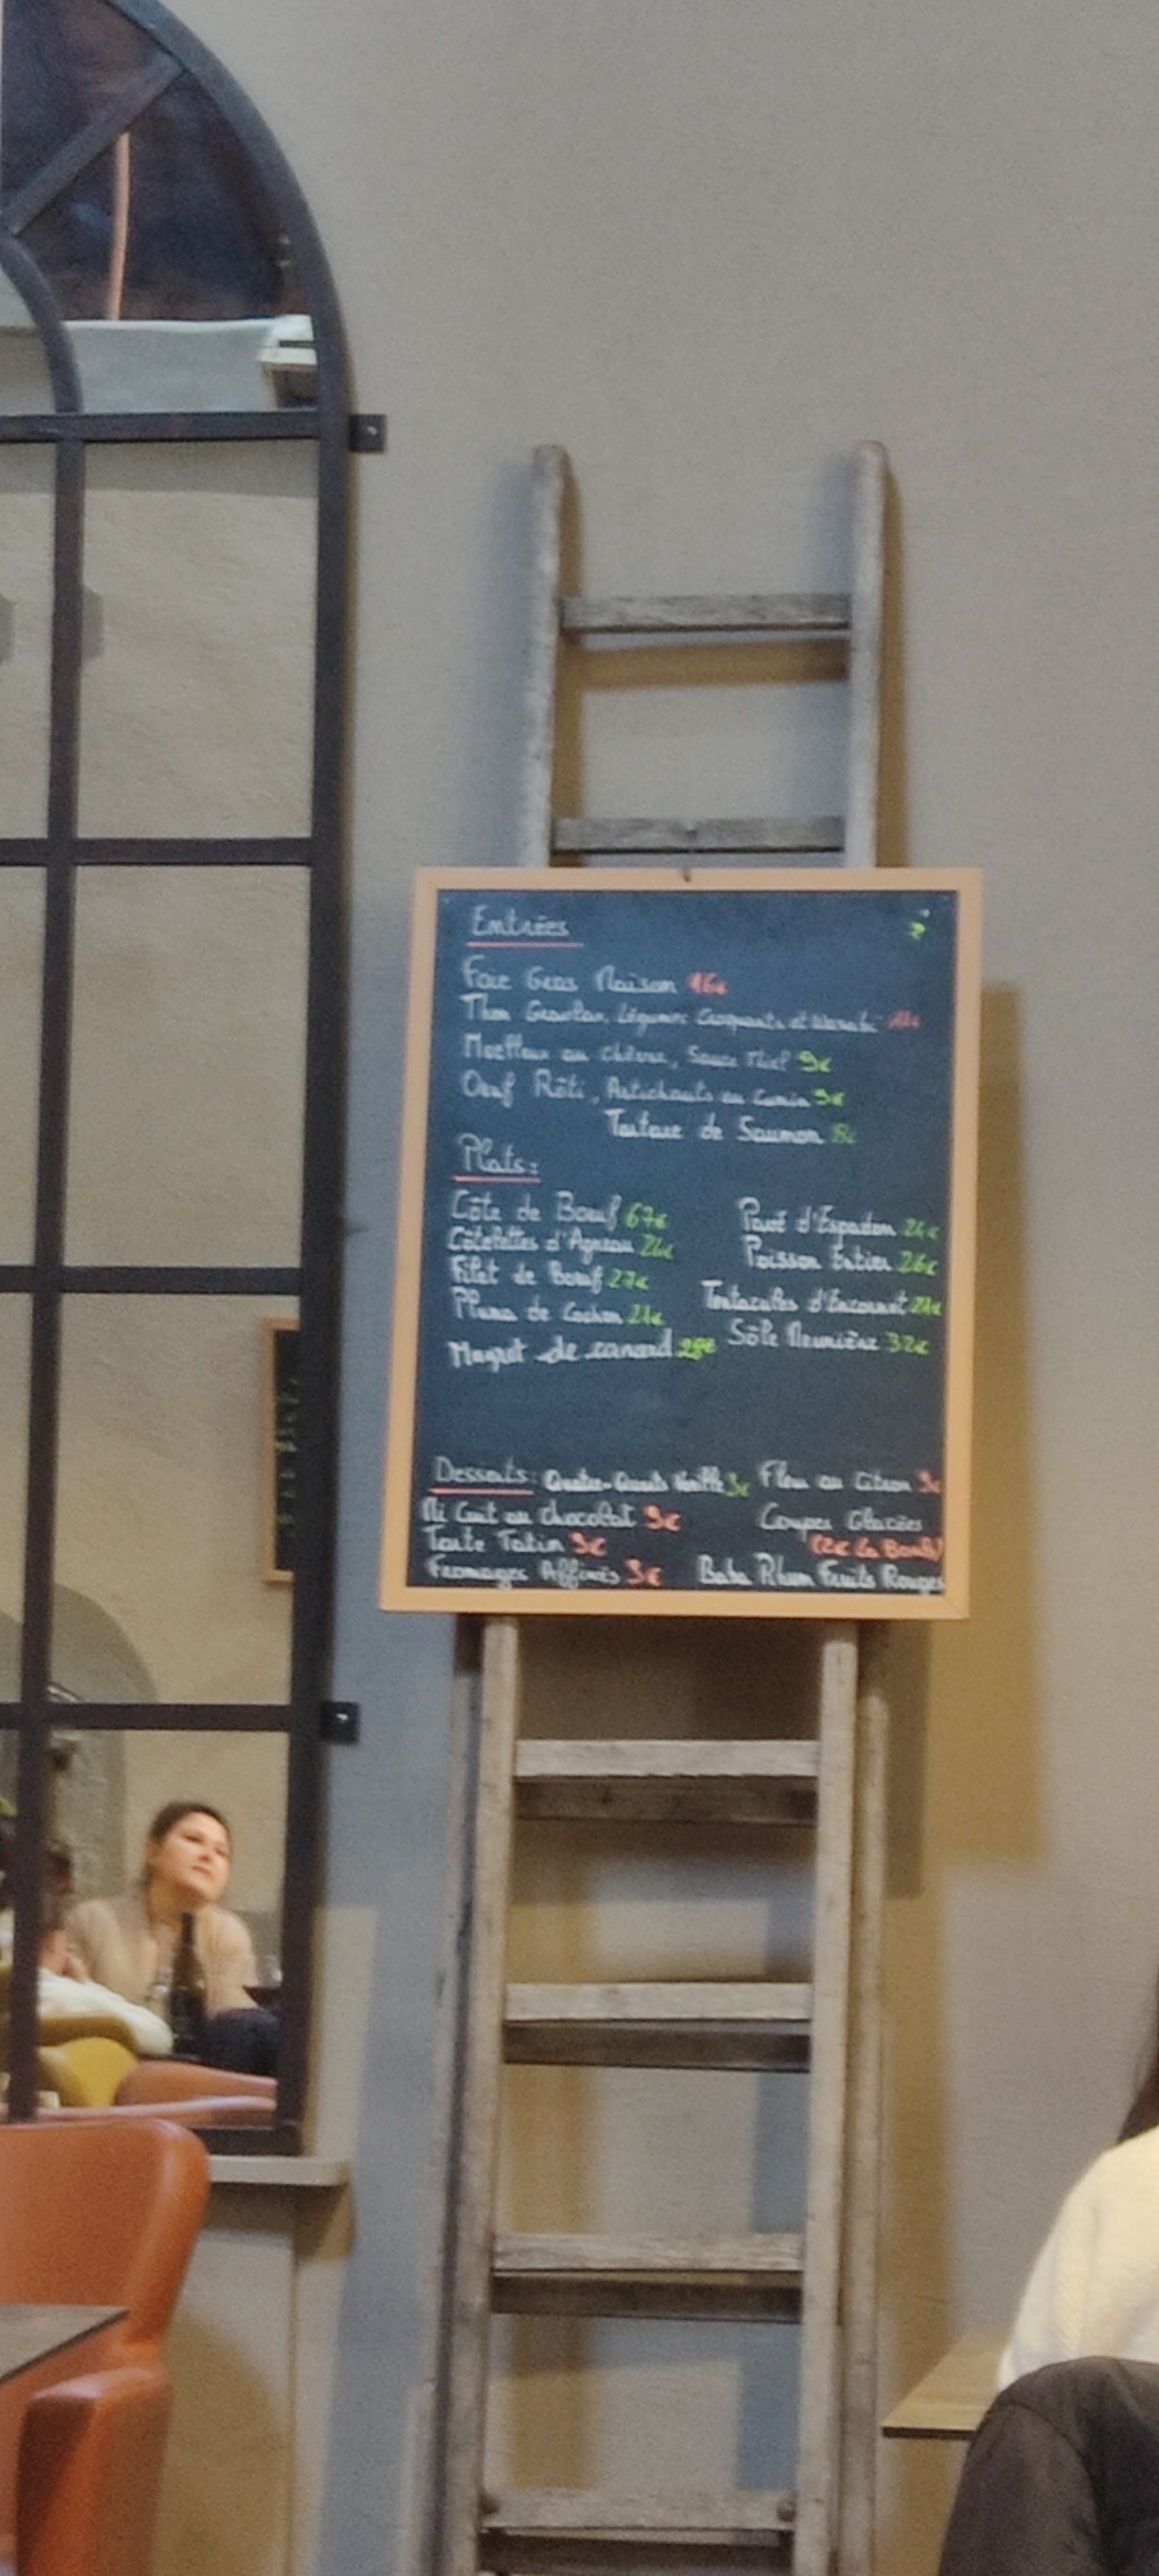 Entrées
Foie Gras Maison 16€
Thon Gravlax, Légumes Croquants et Wasabi
Moelleux au chèvre, Sauce Miel 9€
Oeuf Rôti, Artichauts au Cumin 9€
Tartare de Saumon 8€
Plats:
Côte de Bœuf 67€
Côtelettes d'Agneau
Filet de Bœuf 27€
Pluma de Cochon 21€
Magret de canard 28€
Pavé d'Espadon 24€
Poisson Entier 26€
Tentacules d'Encornet 21€
Sôle Meunière 32€
Desserts: Quatre-Quarts Vanille 9€
Mi Cuit au chocolat 9€
Tarte Tatin 9€
Fromages Affinés 9€
au Citron 9€
Coupes Glacées
(2€ la Boule)
Baba Rhum Fruits Rouges